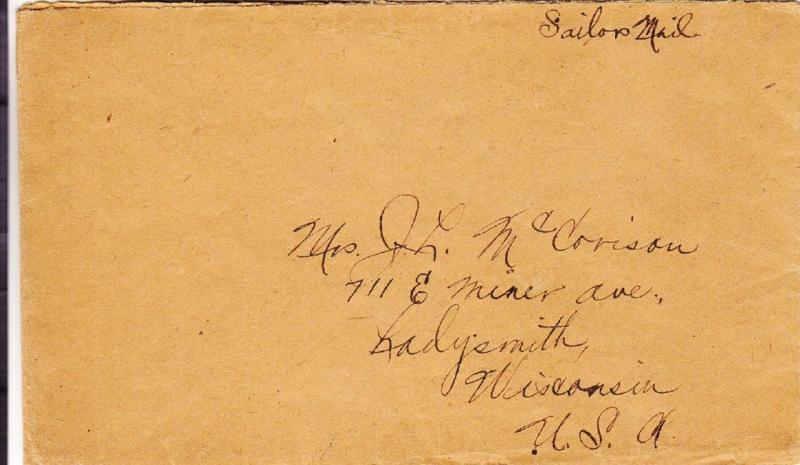 Sailors Mail
Mrs. J. L. McCorison
711 E Miner ave.,
Ladysmith,
Wisconsin
U. S. A.